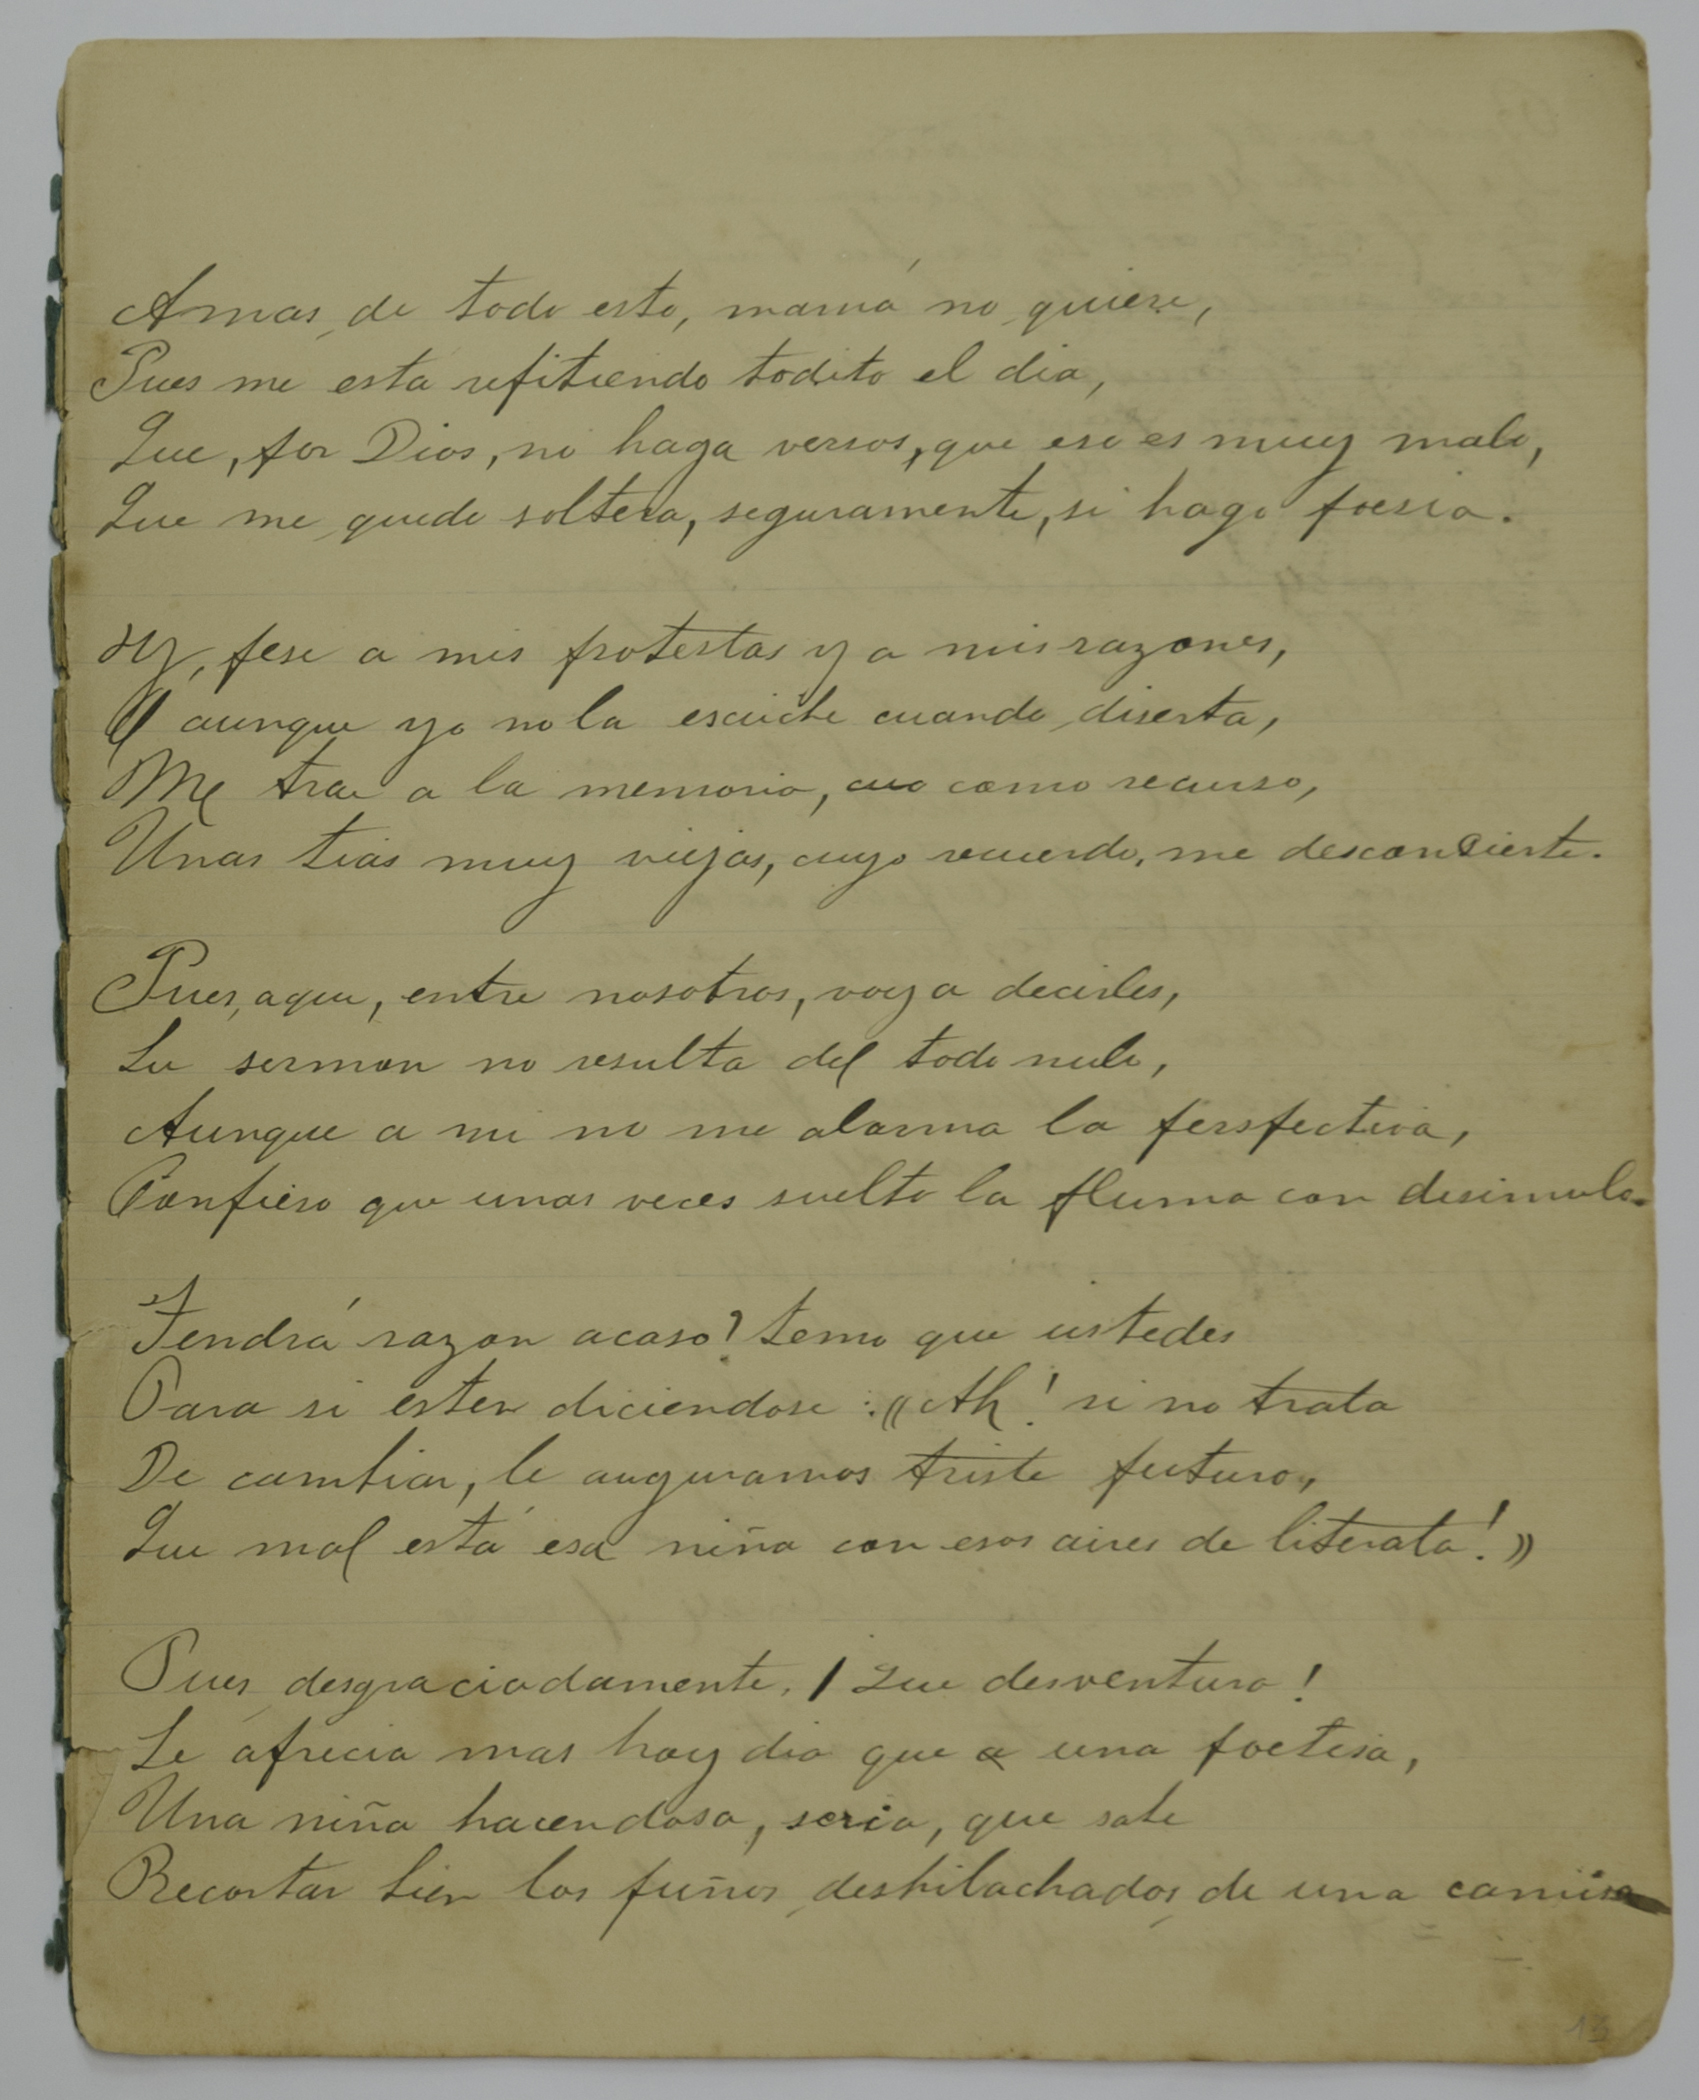 Amas de todo esto, mamá no quiere,
Pues me está repitiendo todito el dia,
Que, por Dios, no haga versos, que eso es muy malo,
Que me quedo soltera, seguramente, si hago poesia.
Y, pese a mis protestas y a mis razones,
Y aunque yo no la escuche cuando diserta,
Me trae a la memoria, como recurso,
Unas tias muy viejas, cuyo recuerdo, me desconcierta.
Pues, aqui, entre nosotros, voy a decirles,
Su sermon no resulta del todo nulo,
Aunque a mi no me alarma la perspectiva,
Confieso que unas veces suelto la pluma con disimulo.
Tendrá razon acaso? temo que ustedes
Para si esten diciendose: «Ah! si no trata
De cambiar, le auguramos triste futuro,
Que mal está esa niña con esos aires de literata!»
Pues desgraciadamente, ¡Que desventura!
Se aprecia mas hoy dia que a una poetisa,
Una niña hacendosa, seria, que sabe
Recortar bien los puños deshilachados de una camisa
13